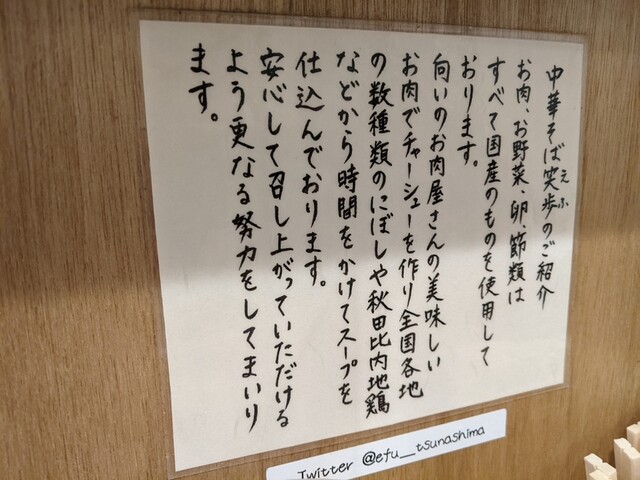 中華そば笑歩のご紹介
えふ
お肉、お野菜、卵、節類は
すべて国産のものを使用して
おります。
向いのお肉屋さんの美味しい
お肉でチャーシューを作り全国各地
の数種類のにぼしや秋田比内地鶏
などから時間をかけてスープを
仕込んでおります。
安心して召し上がっていただける
よう更なる努力をしてまいり
ます。
Twitter @efu__tsunashima